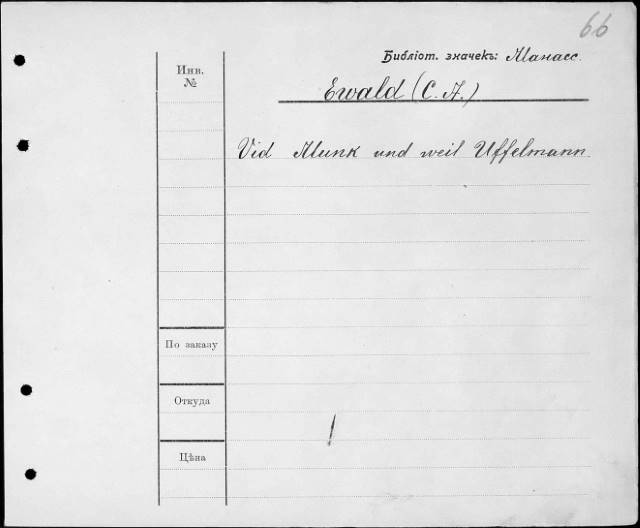 66
Библіот. значекъ: Манасс.
Инв. №
Ewald (C. A.)
Vid Munk und weil Uffelmann.
По заказу
Откуда
Цѣна